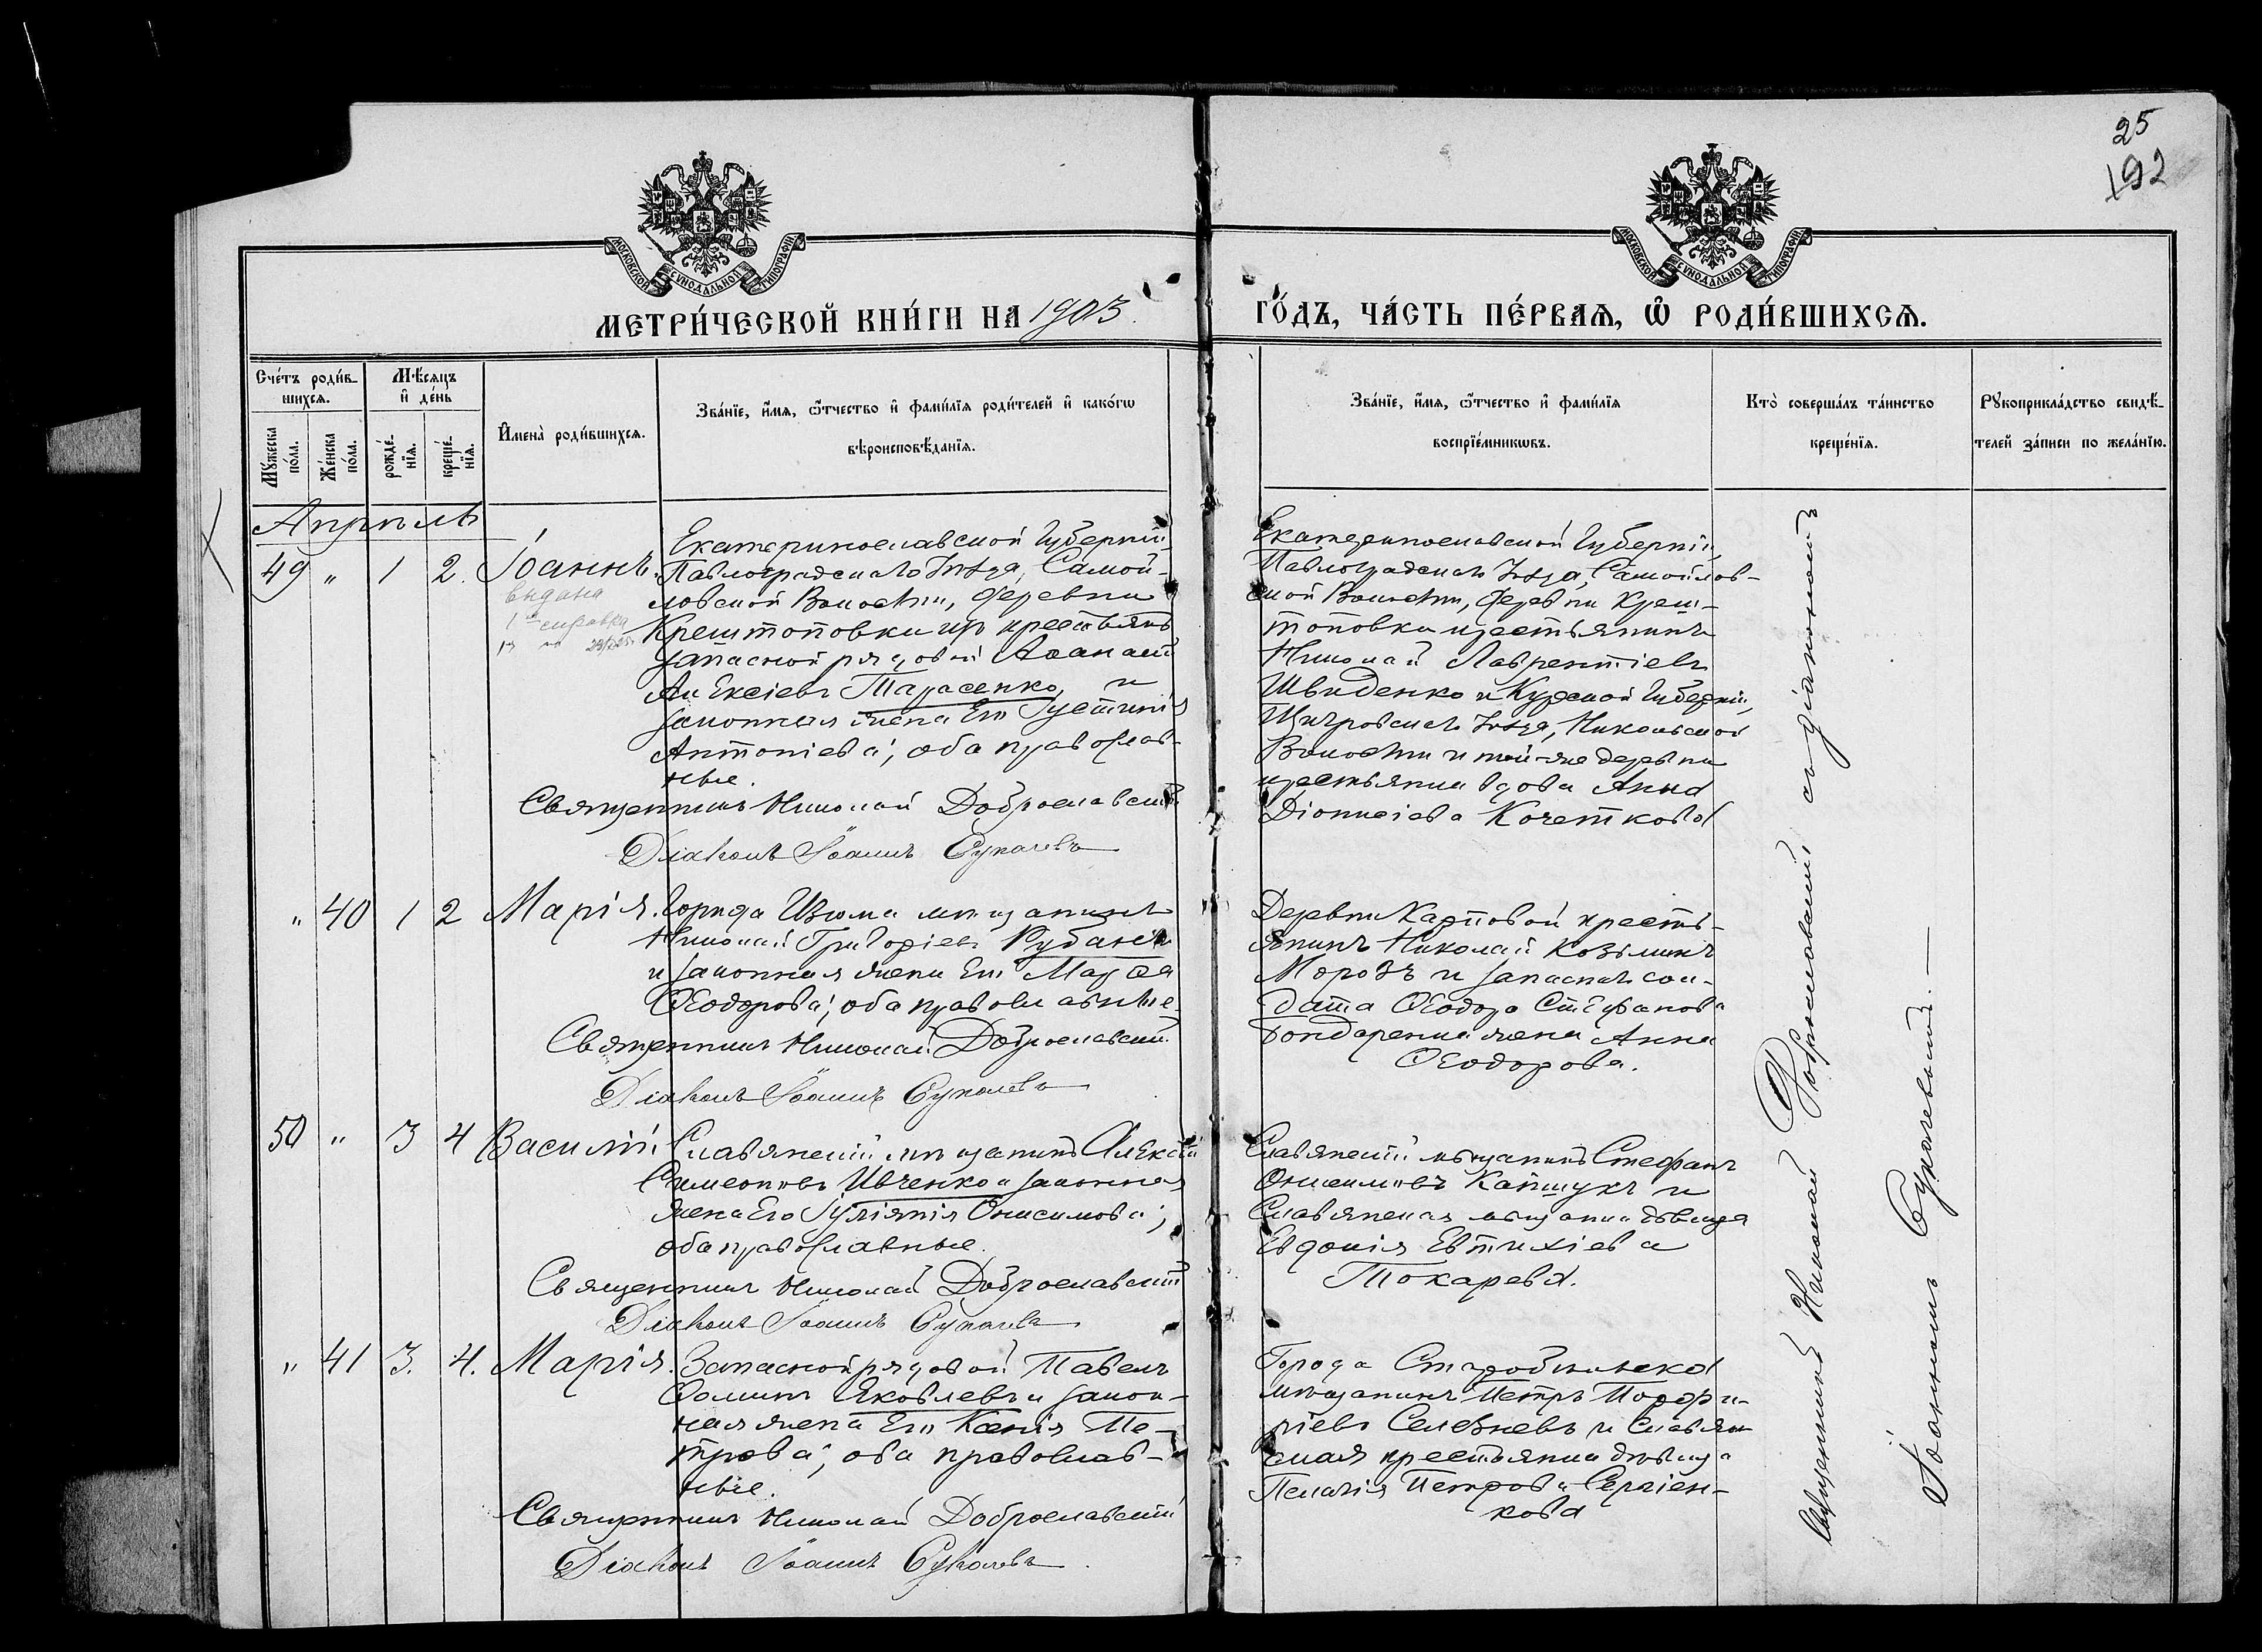 25
192
МОСКОВСКОЙ СѴНОДАЛЬНОЙ ТИПОГРАФІИ
МОСКОВСКОЙ СѴНОДАЛЬНОЙ ТИПОГРАФІИ
МЕТРИ́ЧЕСКОЙ КНИ́ГИ НА 1903.
ГО́ДЪ, ЧА́СТЬ ПЕ́РВАѦ, Ѡ҆ РОДИ́ВШИХСѦ.
Сче́тъ роди́в-
шихсѧ.
Мꙋ́жеска по́ла.
Же́нска по́ла.
Мѣ́сяцъ
и҆ де́нь
рожде́-
нїѧ.
креще́-
нїѧ.
И҆мена̀ роди́вшихсѧ.
Зва́нїе, и҆́мѧ, ѻ҆́тчество и҆ фами́лїѧ роди́телей и҆ како́гѡ
вѣроисповѣ́данїѧ.
Зва́нїе, и҆́мѧ, ѻ҆́тчество и҆ фами́лїѧ
воспрїе́мникѡвъ.
Кто̀ соверша́лъ та́инство
креще́нїѧ.
Рꙋкоприкла́дство свидѣ́-
телей за́писи по жела́нїю.
Апрѣль
49 " 1 2. Іоаннъ.
выдана
справка
Екатеринославской Губерніи,
Павлоградскаго Уѣзда, Самой-
ловской Волости, деревни
Крештоповки изъ крестьянъ
запасной рядовой Аѳанасій
Алексіевъ Тарасенко, и
законная жена Его Іустинія
Антоніева; оба православ-
ные.
Священникъ Николай Доброславскій
Діаконъ Іоаннъ Сукачевъ
Екатеринославской Губерніи,
Павлоградскаго Уѣзда, Самойлов-
ской Волости, деревни Креш-
топовки крестьянинъ
Николай Лаврентіевъ
Швиденко и Курской Губерніи,
Щигровскаго Уѣзда, Никольской
Волости и той-же деревни
крестьянка вдова Анна
Діонисіева Кочеткова
" 40 1 2 Марія.
Города Изюма мѣщанинъ
Николай Григоріевъ
и законная жена Его Марѳа
Ѳеодорова; оба православные.
Священникъ Николай Доброславскій
Діаконъ Іоаннъ Сукачевъ
Деревни Карповой кресть-
янинъ Николай Козьминъ
Морозъ и запаснаго сол-
дата Ѳеодора Стефанова
Бондаренка жена Анна
Ѳеодорова.
50 " 3 4 Василій
Славянскій мѣщанинъ Алексій
Симеоновъ Ивченко и законная
жена Его Іуліянія Онисимова;
оба православные.
Священникъ Николай Доброславскій
Діаконъ Іоаннъ Сукачевъ
Славянскій мѣщанинъ Стефанъ
Онисимовъ Капшукъ и
Славянская мѣщанка дѣвица
Евдокія Евтихіева
Токарева.
" 41 3. 4. Марія.
Запасной рядовой Павелъ
Ѳоминъ Яковлевъ и закон-
ная жена Его Ксенія Пе-
трова; оба православ-
ные.
Священникъ Николай Доброславскій
Діаконъ Іоаннъ Сукачевъ
Города Старобѣльска
мѣщанинъ Петръ Порфи-
ріевъ Селезневъ и Славян-
ская крестьянка дѣвица
Пелагія Петрова Сергіен-
кова
Священникъ Николай Доброславскій съ діакономъ
Іоанномъ Сукачевымъ.—